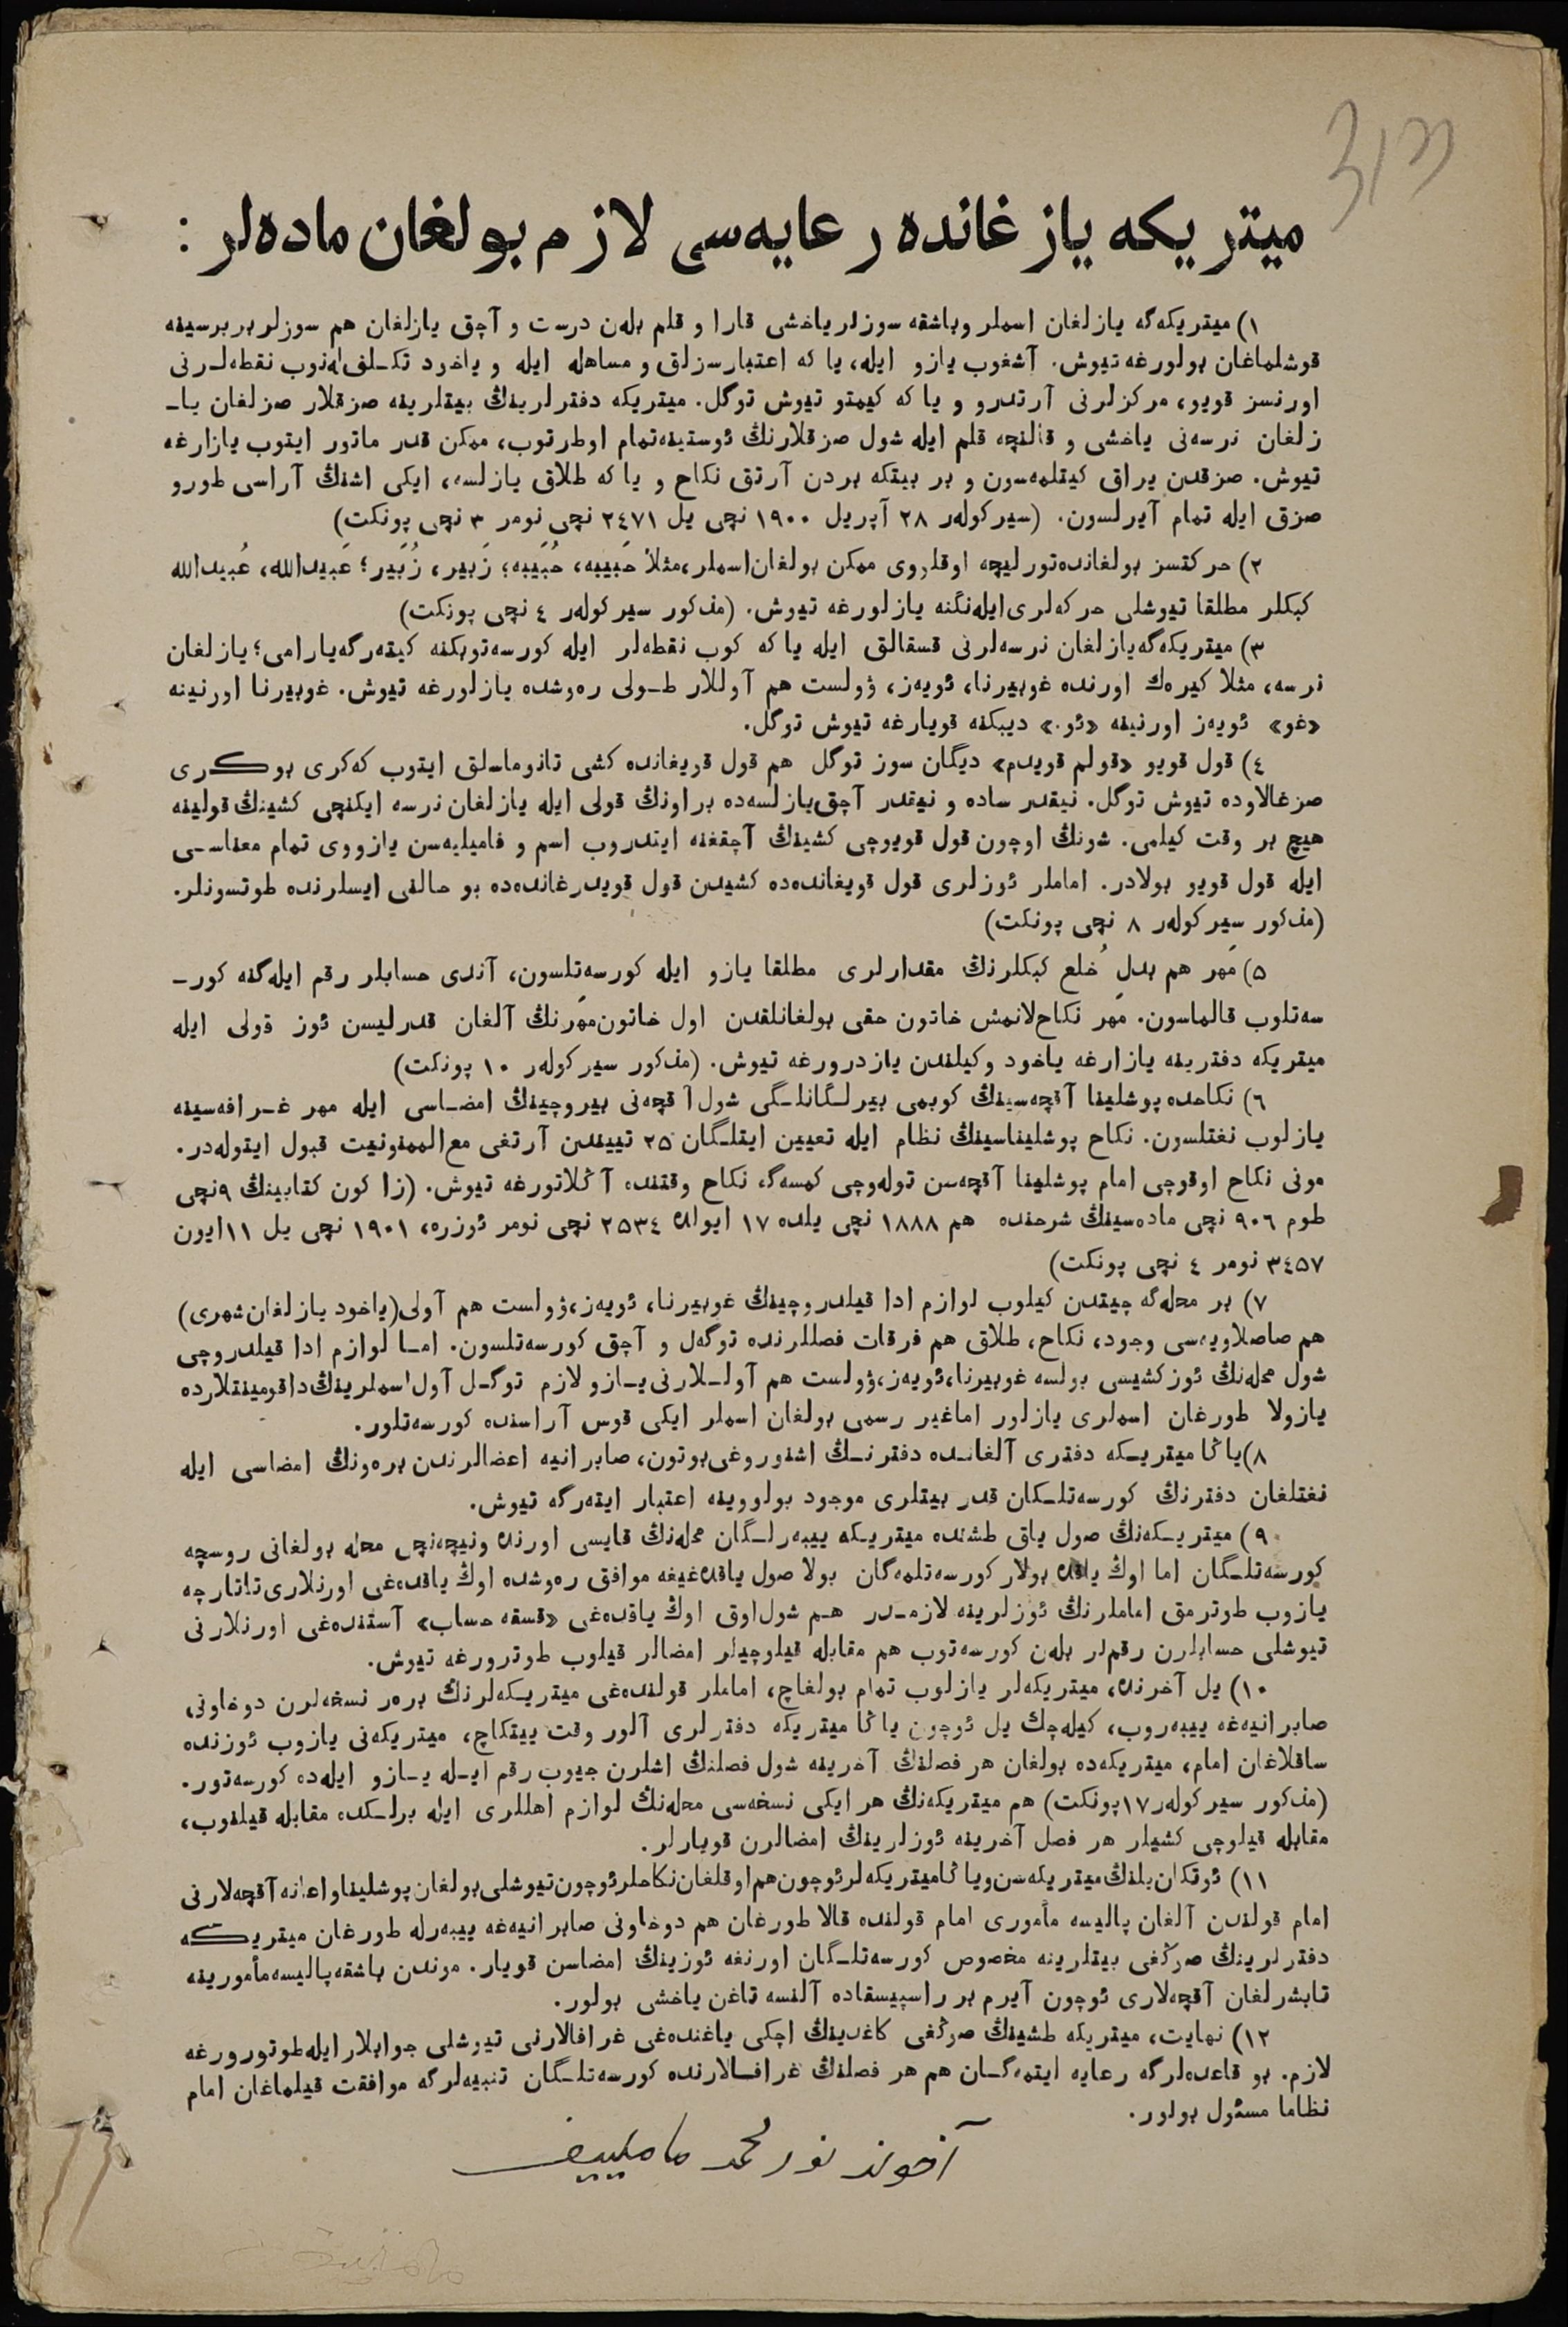 میتریکه یازغانده رعایه‌سی لازم بولغان ماده‌لر :
۱) میتریکه‌گه یازلغان اسملر وباشقه سوزلر یاخشی قارا و قلم بله‌ن درست و آچق یازلغان هم سوزلر بر برسینه
قوشلماغان بولورغه تیوش. آشغوب یازو ایله، یا که اعتبارسزلق و مساهله ایله و یاخود تکـلف له‌نوب نقطه‌لـرنی
اورنسز قویو، مرکزلرنی آرتدرو و یا که کیمتو تیوش توگل. میتریکه دفترلرینڭ بیتلرینه صزقلار صزلغان یا‌ـ
زلغان نرسه‌نی یاخشی و قالنچه قلم ایله شول صزقلارنڭ ئوستینه‌تمام اوطرتوب، ممکن قدر ماتور ایتوب یازارغه
تیوش. صزقدن یراق کیتلمه‌سون و بر بیتکه بردن آرتق نکاح و یا که طلاق یازلسه، ایکی اشنڭ آراسی طورو
صزق ایله تمام آیرلسون. (سیرکوله‌ر ۲۸ آپریل ۱۹۰۰ نچی یل ۲٤۷۱ نچی نومر ۳ نچی پونکت)
۲) حرکتسز بولغانده‌تورلیچه اوقلروی ممکن بولغان‌اسملر،مثلاً حَبیبه، حُبَیبه؛ زَبیر، زُبَیر؛ عَبیدالله، عُبیدالله
کبکلر مطلقا تیوشلی حرکه‌لری‌ایله‌نگنه یازلورغه تیوش. (مذکور سیرکوله‌ر ٤ نچی پونکت)
۳) میتریکه‌گه‌یازلغان نرسه‌لرنی قسقالق ایله یا که کوب نقطه‌لر ایله کورسه‌توبکنه کیته‌رگه‌یارامی؛ یازلغان
نرسه، مثلا کیره‌ك اورنده غوبیرنا، ئویه‌ز، ۋولست هم آوللار طـولی ره‌وشده یازلورغه تیوش. غوبیرنا اورنینه
«غو» ئویه‌ز اورنینه «ئو.» دیبکنه قویارغه تیوش توگل.
٤) قول قویو «قولم قویدم» دیگان سوز توگل هم قول قویغانده کشی تانوماسلق ایتوب که‌کری بوکـری
صزغالاوده تیوش توگل. نیقدر ساده و نیقدر آچق‌یازلسه‌ده براونڭ قولی ایله یازلغان نرسه ایکنچی کشینڭ قولینه
هیچ بر وقت کیلمی. شونڭ اوچون قول قویوچی کشینڭ آچقغنه ایتدروب اسم و فامیلیه‌سن یازووی تمام معناسـی
ایله قول قویو بولادر. اماملر ئوزلری قول قویغانده‌ده کشیدن قول قویدرغانده‌ده بو حالنی ایسلرنده طوتسونلر.
(مذکور سیرکوله‌ر ۸ نچی پونکت)
۵) مَهر هم بدلِ خُلع کبکلرنڭ مقدارلری مطلقا یازو ایله کورسه‌تلسون، آندی حسابلر رقم ایله‌گنه کور‌ـ
سه‌تلوب قالماسون. مَهر نکاح‌لانمش خاتون حقی بولغانلقدن اول خاتون‌مَهرنڭ آلغان قدرلیسن ئوز قولی ایله
میتریکه دفترینه یازارغه یاخود وکیلندن یازدرورغه تیوش. (مذکور سیرکوله‌ر ۱۰ پونکت)
٦) نکاحده پوشلینا آقچه‌سینڭ کوبمی بیرلـگانلـگی شول‌آقچه‌نی بیروچینڭ امضـاسی ایله مهر غـرافه‌سینه
یازلوب نغتلسون. نکاح پوشلیناسینڭ نظام ایله تعیین ایتلـگان ۲۵ تییندن آرتغی مع‌الممنونیت قبول ایتوله‌در.
مونی نکاح اوقوچی امام پوشلینا آقچه‌سن توله‌وچی کمسه‌گه نکاح وقتنده آڭلاتورغه تیوش. (زاکون کتابینڭ ۹نچی
طوم ۹۰٦ نچی ماده‌سینڭ شرحنده هم ۱۸۸۸ نچی یلده ۱۷ ایولده ۲۵۳٤ نچی نومر ئوزره، ۱۹۰۱ نچی یل ۱۱ایون
۳٤۵۷ نومر ٤ نچی پونکت)
۷) بر محله‌گه چیتدن کیلوب لوازم ادا قیلدروچینڭ غوبیرنا، ئویه‌ز،ۋولست هم آولی(یاخود یازلغان‌شهری)
هم صاصلاویه‌سی وجود، نکاح، طلاق هم فرقات فصللرنده توگه‌ل و آچق کورسه‌تلسون. امـا لوازم ادا قیلدروچی
شول محله‌نڭ ئوزکشیسی بولسه غوبیرنا،ئویه‌ز،ۋولست هم آولـلارنی یـازو لازم توگـل آول‌اسملرینڭ‌داقومینتلارده
یازولا طورغان اسملری یازلور اماغیر رسمی بولغان اسملر ایکی قوس آراسنده کورسه‌تلور.
۸)یاڭا میتریـکه دفتری آلغانـده دفترنـڭ اشنوروغی‌بوتون، صابرانیه اعضالرندن بره‌ونڭ امضاسی ایله
نغتلغان دفترنڭ کورسه‌تلـکان قدر بیتلری موجود بولووینه اعتبار ایته‌رگه تیوش.
۹) میتریـکه‌نڭ صول یاق طشنده میتریـکه ییبه‌رلـگان محله‌نڭ قایسی اورنده ونیچه‌نچی محله بولغانی روسچه
کورسه‌تلـگان اما اوڭ یاقده بولار کورسه‌تلمه‌گان بولا صول یاقده‌غیغه موافق ره‌وشده اوڭ یاقده‌غی اورنلاری‌تاتارچه
یازوب طوترمق اماملرنڭ ئوزلرینه لازمـدر هـم شول‌اوق اوڭ یاقده‌غی «قسقه حساب» آستنده‌غی اورنلارنی
تیوشلی حسابلرن رقم‌لر بله‌ن کورسه‌توب هم مقابله قیلوچیلر امضالر قیلوب طوترورغه تیوش.
۱۰) یل آخرنده، میتریکه‌لر یازلوب تمام بولغاچ، اماملر قولنده‌غی میتریـکه‌لرنڭ بره‌ر نسخه‌لرن دوخاونی
صابرانیه‌غه ییبه‌روب، کیله‌چك یل ئوچون یاڭا میتریکه دفترلری آلور وقت ییتکاچ، میتریکه‌نی یازوب ئوزنده
ساقلاغان امام، میتریکه‌ده بولغان هر فصلنڭ آخرینه شول فصلنڭ اشلرن جیوب رقم ایـله یـازو ایله‌ده کورسه‌تور.
(مذکور سیرکوله‌ر۱۷پونکت) هم میتریکه‌نڭ هر ایکی نسخه‌سی محله‌نڭ لوازم اهللری ایله برلـکده مقابله قیلنوب،
مقابله قیلوچی کشیلر هر فصل آخرینه ئوزلرینڭ امضالرن قویارلر.
۱۱) ئوتکان‌یلنڭ‌میتریکه‌سن‌ویاڭامیتریکه‌لرئوچون‌هم‌اوقلغان‌نکاحلرئوچون‌تیوشلی‌بولغان‌پوشلیناواعانه‌آقچه‌لارنی
امام قولندن آلغان پالیسه مأموری امام قولنده قالا طورغان هم دوخاونی صابرانیه‌غه ییبه‌رله طورغان میتریـکه
دفترلرینڭ صوڭغی بیتلرینه مخصوص کورسه‌تلـگان اورنغه ئوزینڭ امضاسن قویار. موندن باشقه‌پالیسه‌مأمورینه
تابشرلغان آقچه‌لاری ئوچون آیرم بر راسپیسقاده آلنسه تاغن یاخشی بولور.
۱۲) نهایت، میتریکه طشینڭ صوڭغی کاغدینڭ اچکی یاغنده‌غی غرافالارنی تیوشلی جوابلارایله‌طوتورورغه
لازم. بو قاعده‌لرگه رعایه ایتمه‌گـان هم هر فصلنڭ غرافـالارنده کورسه‌تلـگان تنبیه‌لرگه موافقت قیلماغان امام
نظاما مسئول بولور.
آخوند نورمحمد مامليیف